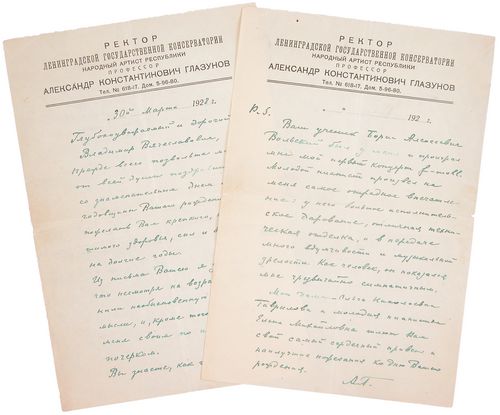 РЕКТОР
ЛЕНИНГРАДСКОЙ ГОСУДАРСТВЕННОЙ КОНСЕРВАТОРИИ
НАРОДНЫЙ АРТИСТ РЕСПУБЛИКИ
ПРОФЕССОР
АЛЕКСАНДР КОНСТАНТИНОВИЧ ГЛАЗУНОВ
Тел. № 618-17. Дом. 5-96-80.
30го Марта 1928 г.
Глубокоуважаемый и Дорогой
Владимир Вячеславович,
Прежде всего позвольте
от всей души поздрав
со знаменательным Днем
годовщины Вашего рожден
пожелать Вам крепкого,
здоровья, сил и
на долгие годы.
Из письма Вашего я
что несмотря на возра
необыкновенную
мысли, и, кроме того
меня своим по
почерком.
Вы знаете, как
РЕКТОР
ЛЕНИНГРАДСКОЙ ГОСУДАРСТВЕННОЙ КОНСЕРВАТОРИИ
НАРОДНЫЙ АРТИСТ РЕСПУБЛИКИ
ПРОФЕССОР
АЛЕКСАНДР КОНСТАНТИНОВИЧ ГЛАЗУНОВ
Тел. № 618-17. Дом. 5-96-80.
192 г.
P.S.
Ваш ученик Борис Алексеевич
Вольский был у меня и проиграл
мне мой первый концерт f-moll.
Молодой пианист произвел на
меня самое отрадное впечатле-
ние: у него большое исполнительс-
кое дарование, отличная техни-
ческая отделка, и в передаче
много вдумчивости и музыкальной
зрелости. Как человек, он показался
мне чрезвычайно симпатичным.
Ольга Николаевна
Гаврилова и молодая пианистка
Елена Михайловна шлют Вам
свой самый сердечный привет и
наилучшие пожелания ко дню Вашего
рождения.
А.Г.